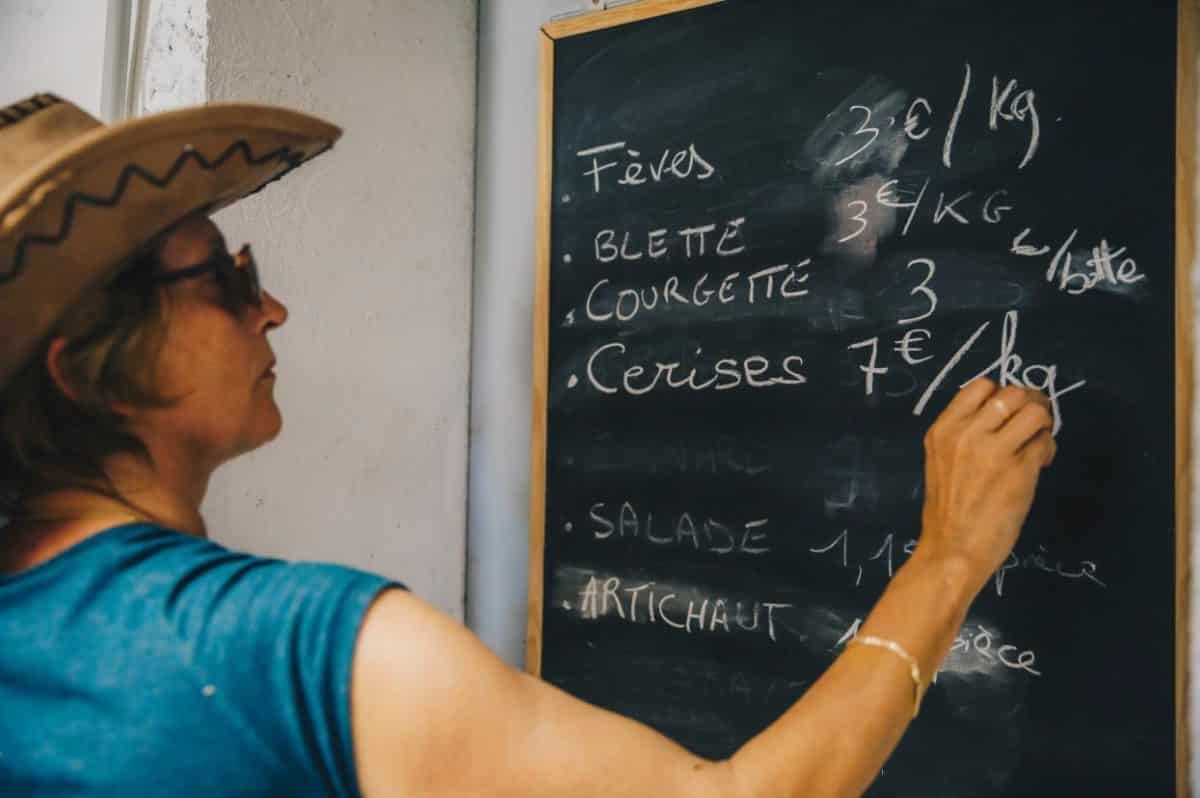 . Fèves 3 €/Kg.
. BLETTE 3€/KG
. COURGETTE 3 €/botte
. Cerises 7€/kg
. SALADE 1,1 pièce
. ARTICHAUT 1 pièce